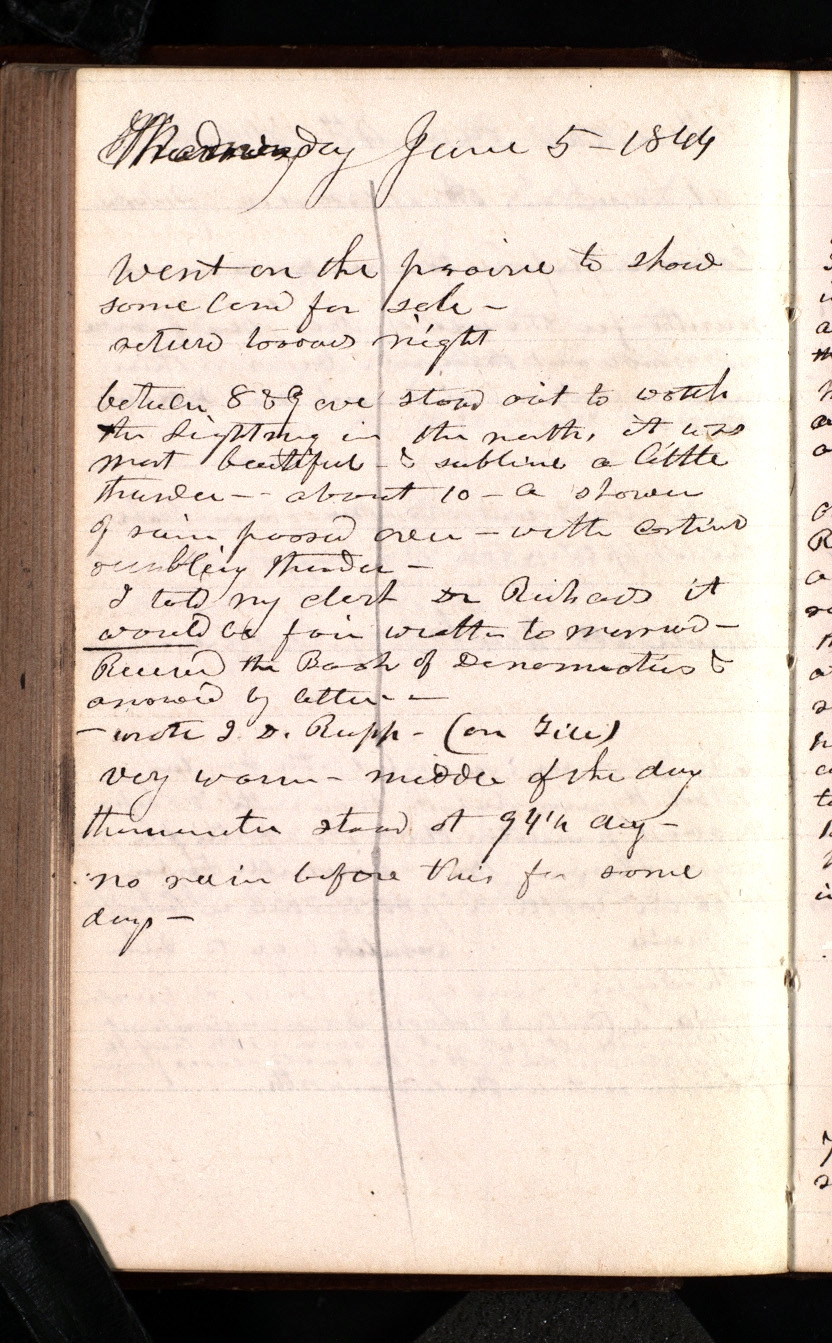 Wednesday June 5 - 1844
went on the prairie to show
some land for sale -
return towards night
between 8 & 9 eve stood out to watch
the lightning in the north, it was
most beautiful - & sublime a little
thunder - - about 10 - a shower
of rain passed over - with continud
rumbling thunder -
I told my clerk Dr Richards it
would be fair weather to morrow -
Received the Book of Denominations &
answerd by letter - -
- wrote I. D. Rupp - (on file)
very warm - middle of the day
thermometer stood at 94 deg -
no rain before this for some
days -